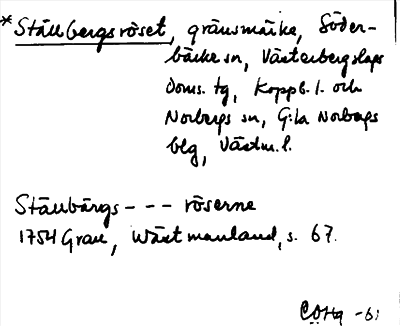 *Ställbergsröset, gränsmärke, Söder-
bärke sn, Västerbergslags
doms. tg, Koppb. l. och
Norbergs sn, G:la Norbergs
blg, Västm. l.
Stälbärgs - - - röserne
1754 Grau, Wästmanland, s. 67.
C.O.Hg -61